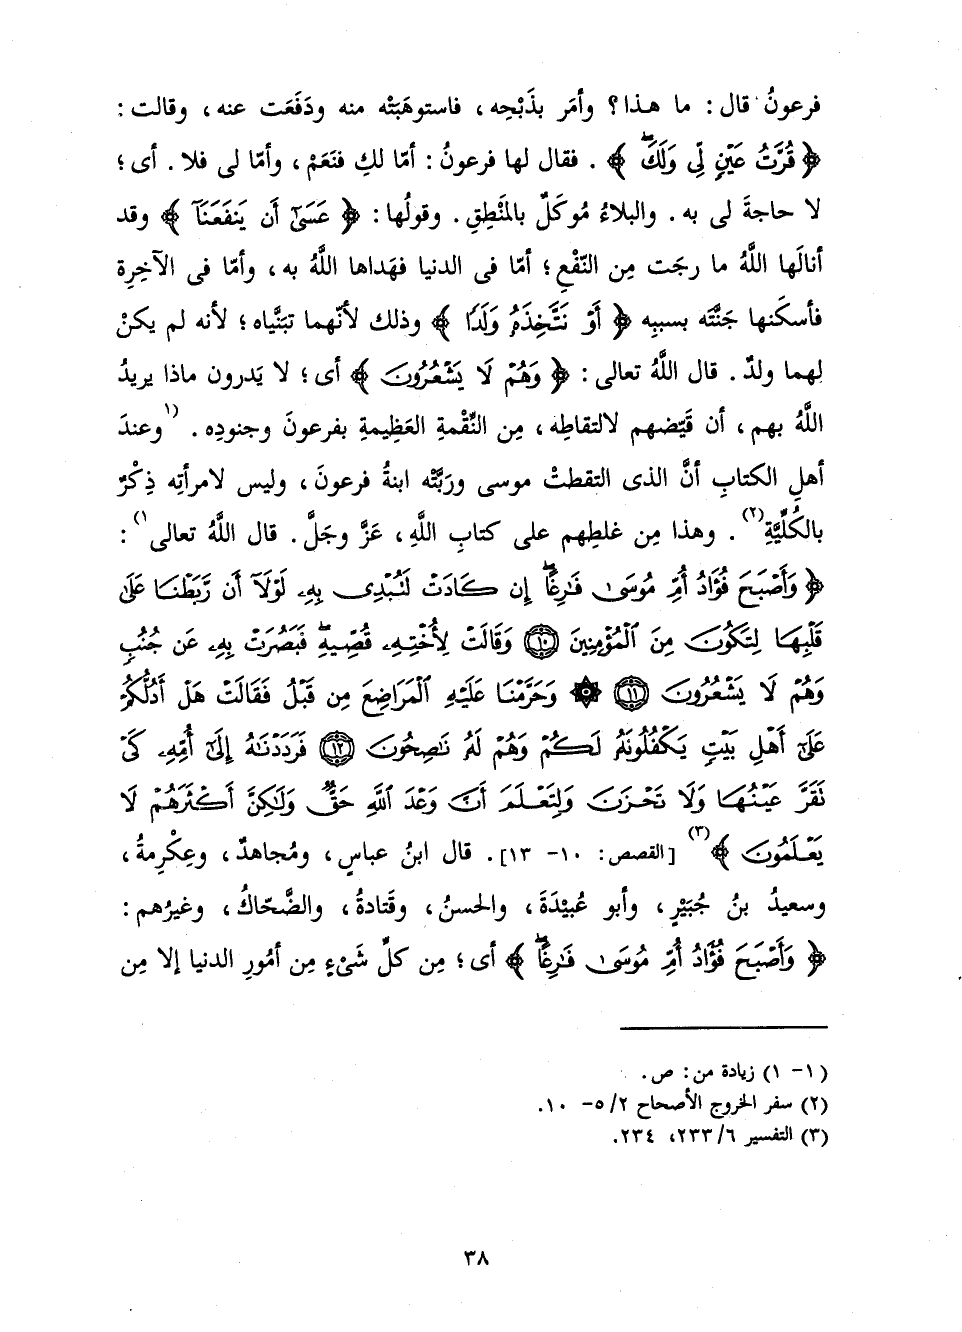 فرعونُ قال : ما هذا ؟ وأمَر بذَبْحِه ، فاستوهَبَتْه منه ودَفَعَت عنه ، وقالت :
﴿ قُرَّتُ عَيْنٍ لِّى وَلَكَۖ ﴾ . فقال لها فرعونُ : أمّا لكِ فنَعَمْ ، وأمّا لى فلا . أى ؛
لا حاجةَ لى به . والبلاءُ مُوكَلٌ بالمَنْطِقِ . وقولُها : ﴿ عَسَىٰٓ أَن يَنفَعَنَآ ﴾ وقد
أنالَها اللَّهُ ما رجَت مِن النّفْعِ ؛ أمّا فى الدنيا فهَداها اللَّهُ به ، وأمّا فى الآخِرةِ
فأسكَنها جَنَّته بسببِه ﴿ أَوْ نَتَّخِذَهُۥ وَلَدًا ﴾ وذلك لأنّهما تبَنَّياه ؛ لأنه لم يكنْ
لهما ولدٌ . قال اللَّهُ تعالى : ﴿ وَهُمْ لَا يَشْعُرُونَ ﴾ أى ؛ لا يَدرون ماذا يريدُ
اللَّهُ بهم ، أن قَيّضهم لالتقاطِه ، مِن النِّقْمةِ العَظِيمةِ بفرعونَ وجنودِه . (١وعندَ
أهلِ الكتابِ أنَّ الذى التقطتْ موسى وربَّتْه ابنةُ فرعونَ ، وليس لامرأتِه ذِكْرٌ
بالكُلِّيَّةِ(٢) . وهذا مِن غلطِهم على كتابِ اللَّهِ ، عَزَّ وجَلَّ . قال اللَّهُ تعالى١) :
﴿ وَأَصْبَحَ فُؤَادُ أُمِّ مُوسَىٰ فَٰرِغًاۖ إِن كَادَتْ لَتُبْدِى بِهِۦ لَوْلَآ أَن رَّبَطْنَا عَلَىٰ
قَلْبِهَا لِتَكُونَ مِنَ ٱلْمُؤْمِنِينَ ۝١٠ وَقَالَتْ لِأُخْتِهِۦ قُصِّيهِۖ فَبَصُرَتْ بِهِۦ عَن جُنُبٍ
وَهُمْ لَا يَشْعُرُونَ ۝١١ ۞ وَحَرَّمْنَا عَلَيْهِ ٱلْمَرَاضِعَ مِن قَبْلُ فَقَالَتْ هَلْ أَدُلُّكُمْ
عَلَىٰٓ أَهْلِ بَيْتٍ يَكْفُلُونَهُۥ لَكُمْ وَهُمْ لَهُۥ نَٰصِحُونَ ۝١٢ فَرَدَدْنَٰهُ إِلَىٰٓ أُمِّهِۦ كَىْ
تَقَرَّ عَيْنُهَا وَلَا تَحْزَنَ وَلِتَعْلَمَ أَنَّ وَعْدَ ٱللَّهِ حَقٌّ وَلَٰكِنَّ أَكْثَرَهُمْ لَا
يَعْلَمُونَ ﴾(٣) [القصص : ١٠ - ١٣] . قال ابنُ عباسٍ ، ومُجاهدٌ ، وعِكْرِمةُ ،
وسعيدُ بنُ جُبَيْرٍ ، وأبو عُبيْدَةَ ، والحسنُ ، وقَتادةُ ، والضَّحّاكُ ، وغيرُهم :
﴿ وَأَصْبَحَ فُؤَادُ أُمِّ مُوسَىٰ فَٰرِغًاۖ ﴾ أى ؛ مِن كلِّ شَىْءٍ مِن أمُورِ الدنيا إلا مِن
(١ - ١) زيادة من : ص .
(٢) سفر الخروج الأصحاح ٢/ ٥ - ١٠ .
(٣) التفسير ٦/ ٢٣٣ ، ٢٣٤ .
٣٨